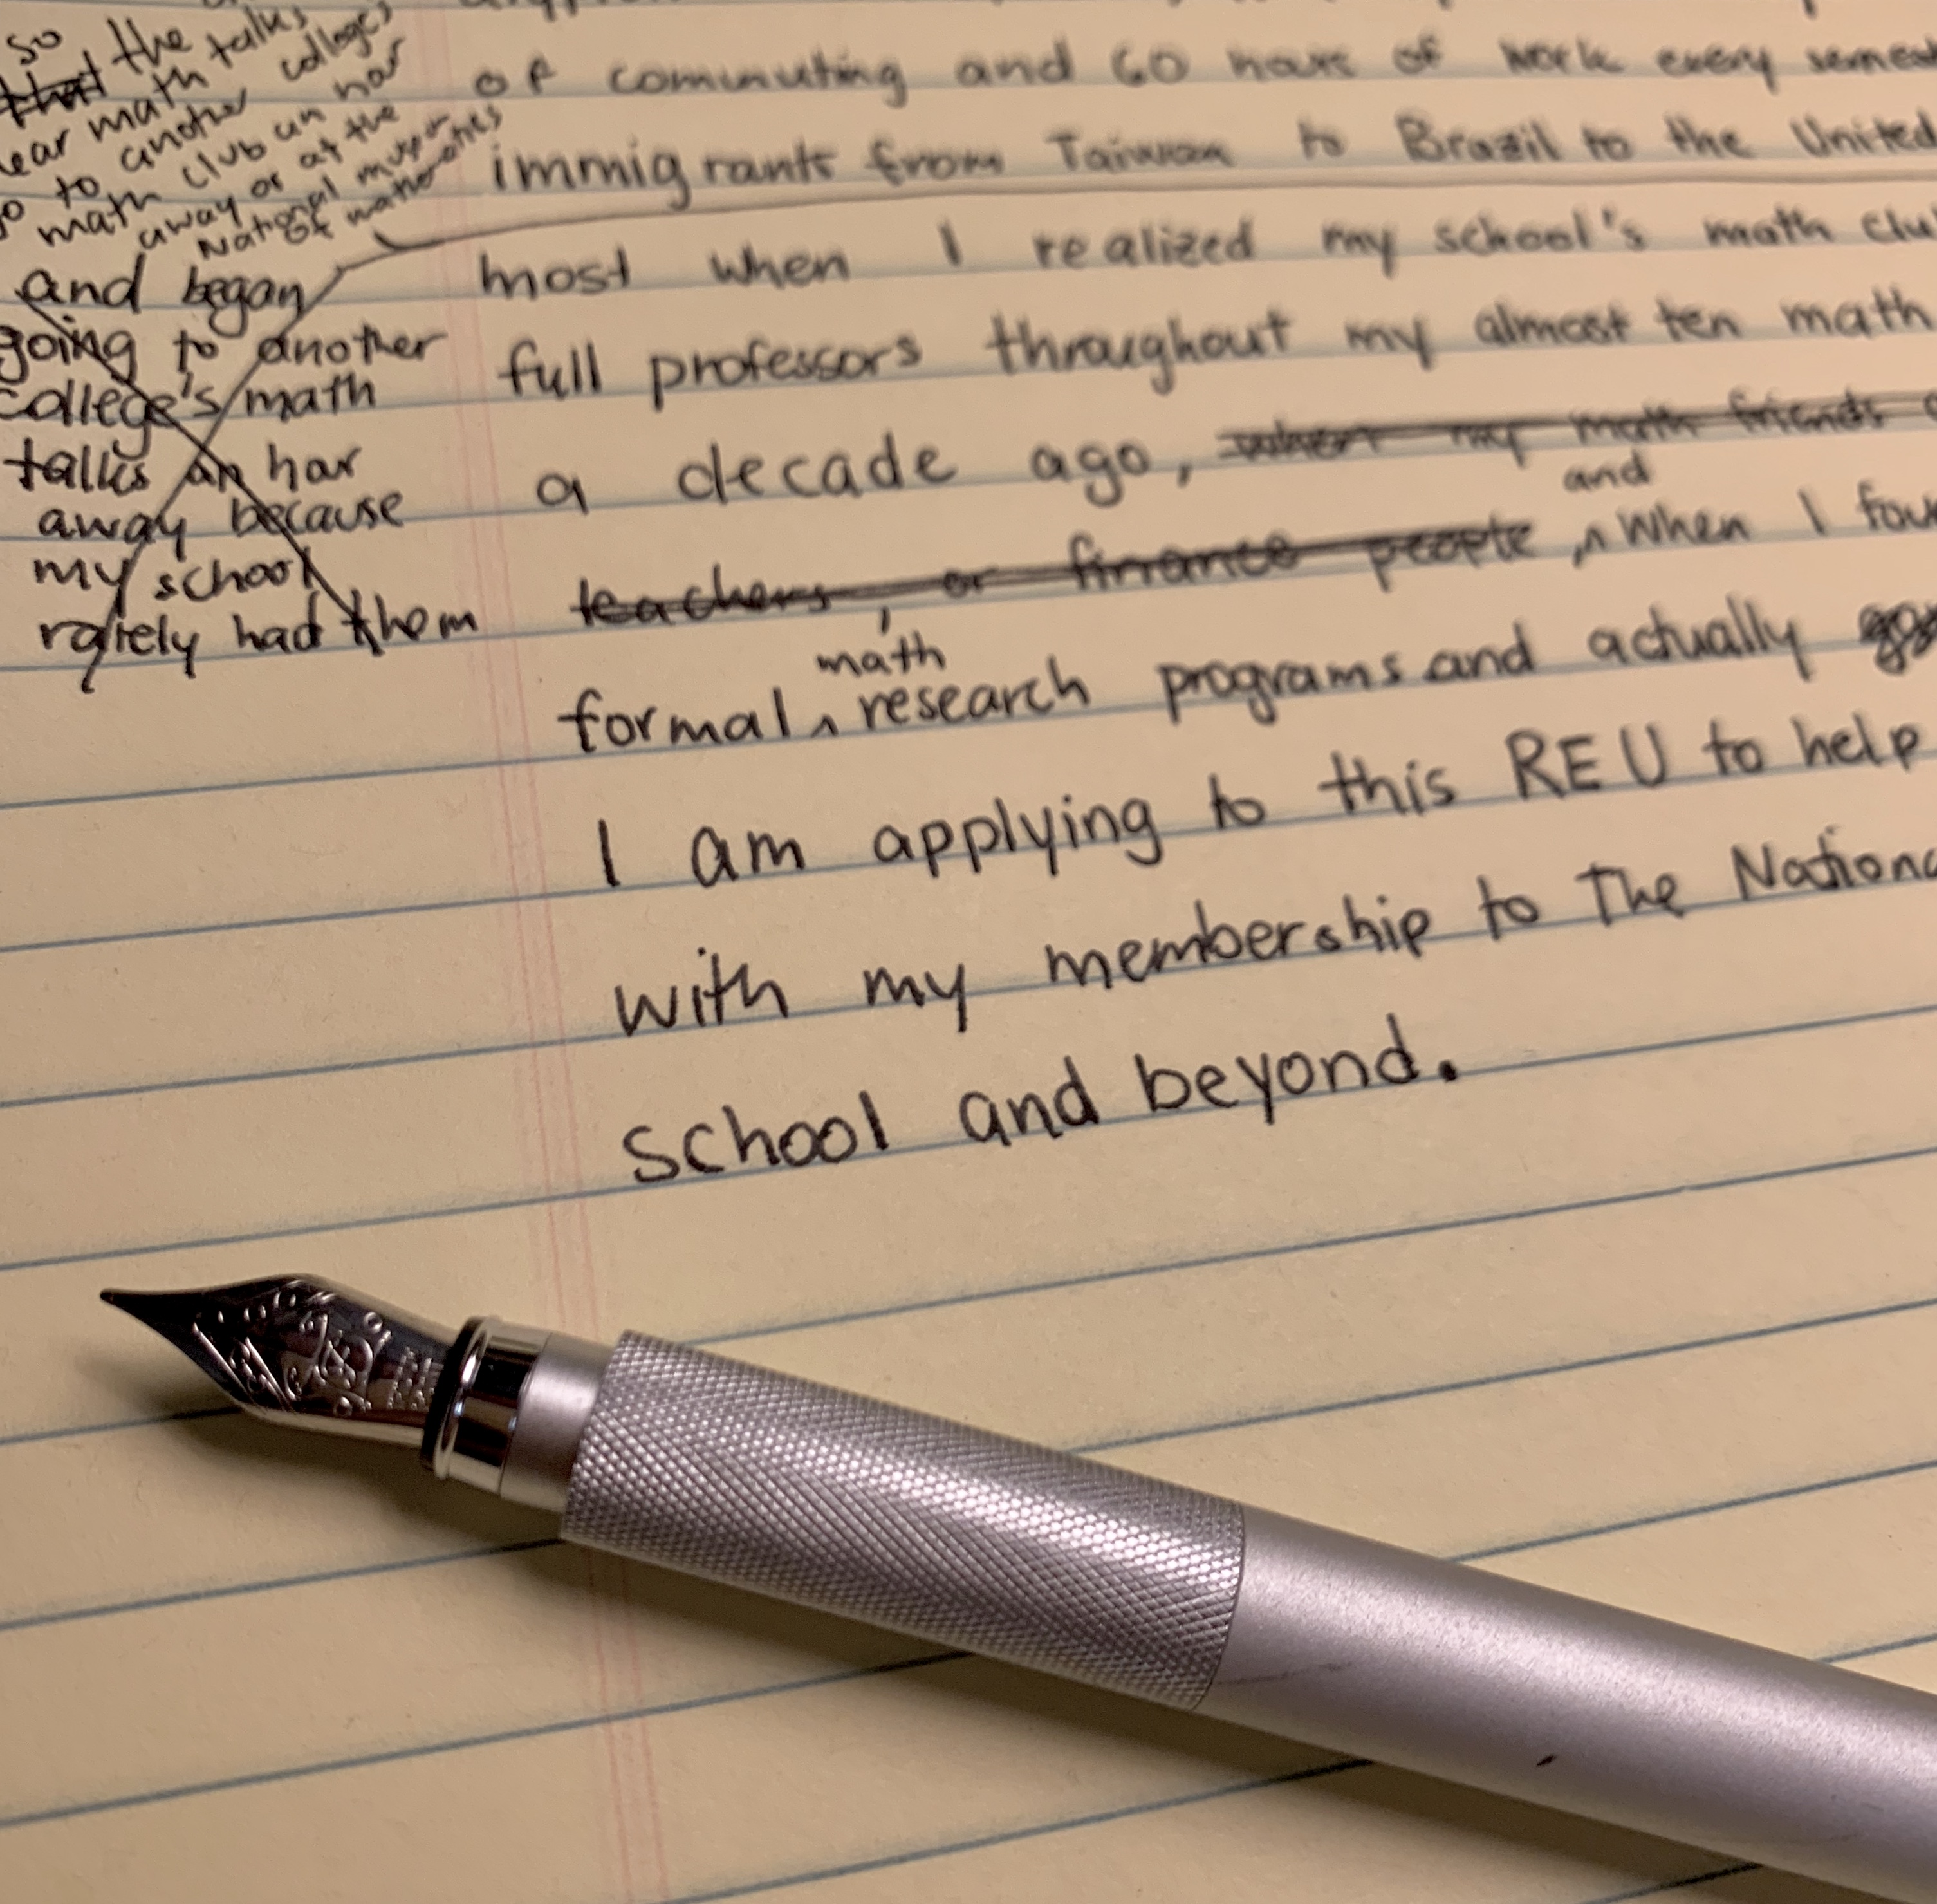 so
that the
ear math talks
to another colleges
math club an har
away or at the
National museum
of mathematics
and began
going to another
college's math
talks an har
away because
my school
rarely had them
of commuting and 60 hours of work every semest
immigrants from Taiwan to Brazil to the United
most when I realized my school's math clu
full professors throughout my almost ten math
a decade ago, when my math friends
and
teachers, or finance people ^ when I fou
math
formal ^ research programs and actually
I am applying to this REU to help
with my membership to The Nationa
school and beyond.